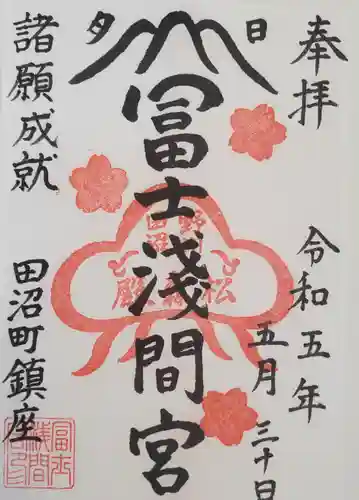 奉拝
令和五年
五月三十日
日
夕
冨士浅間宮
諸願成就
田沼町鎮座
冨士
浅間
宮印